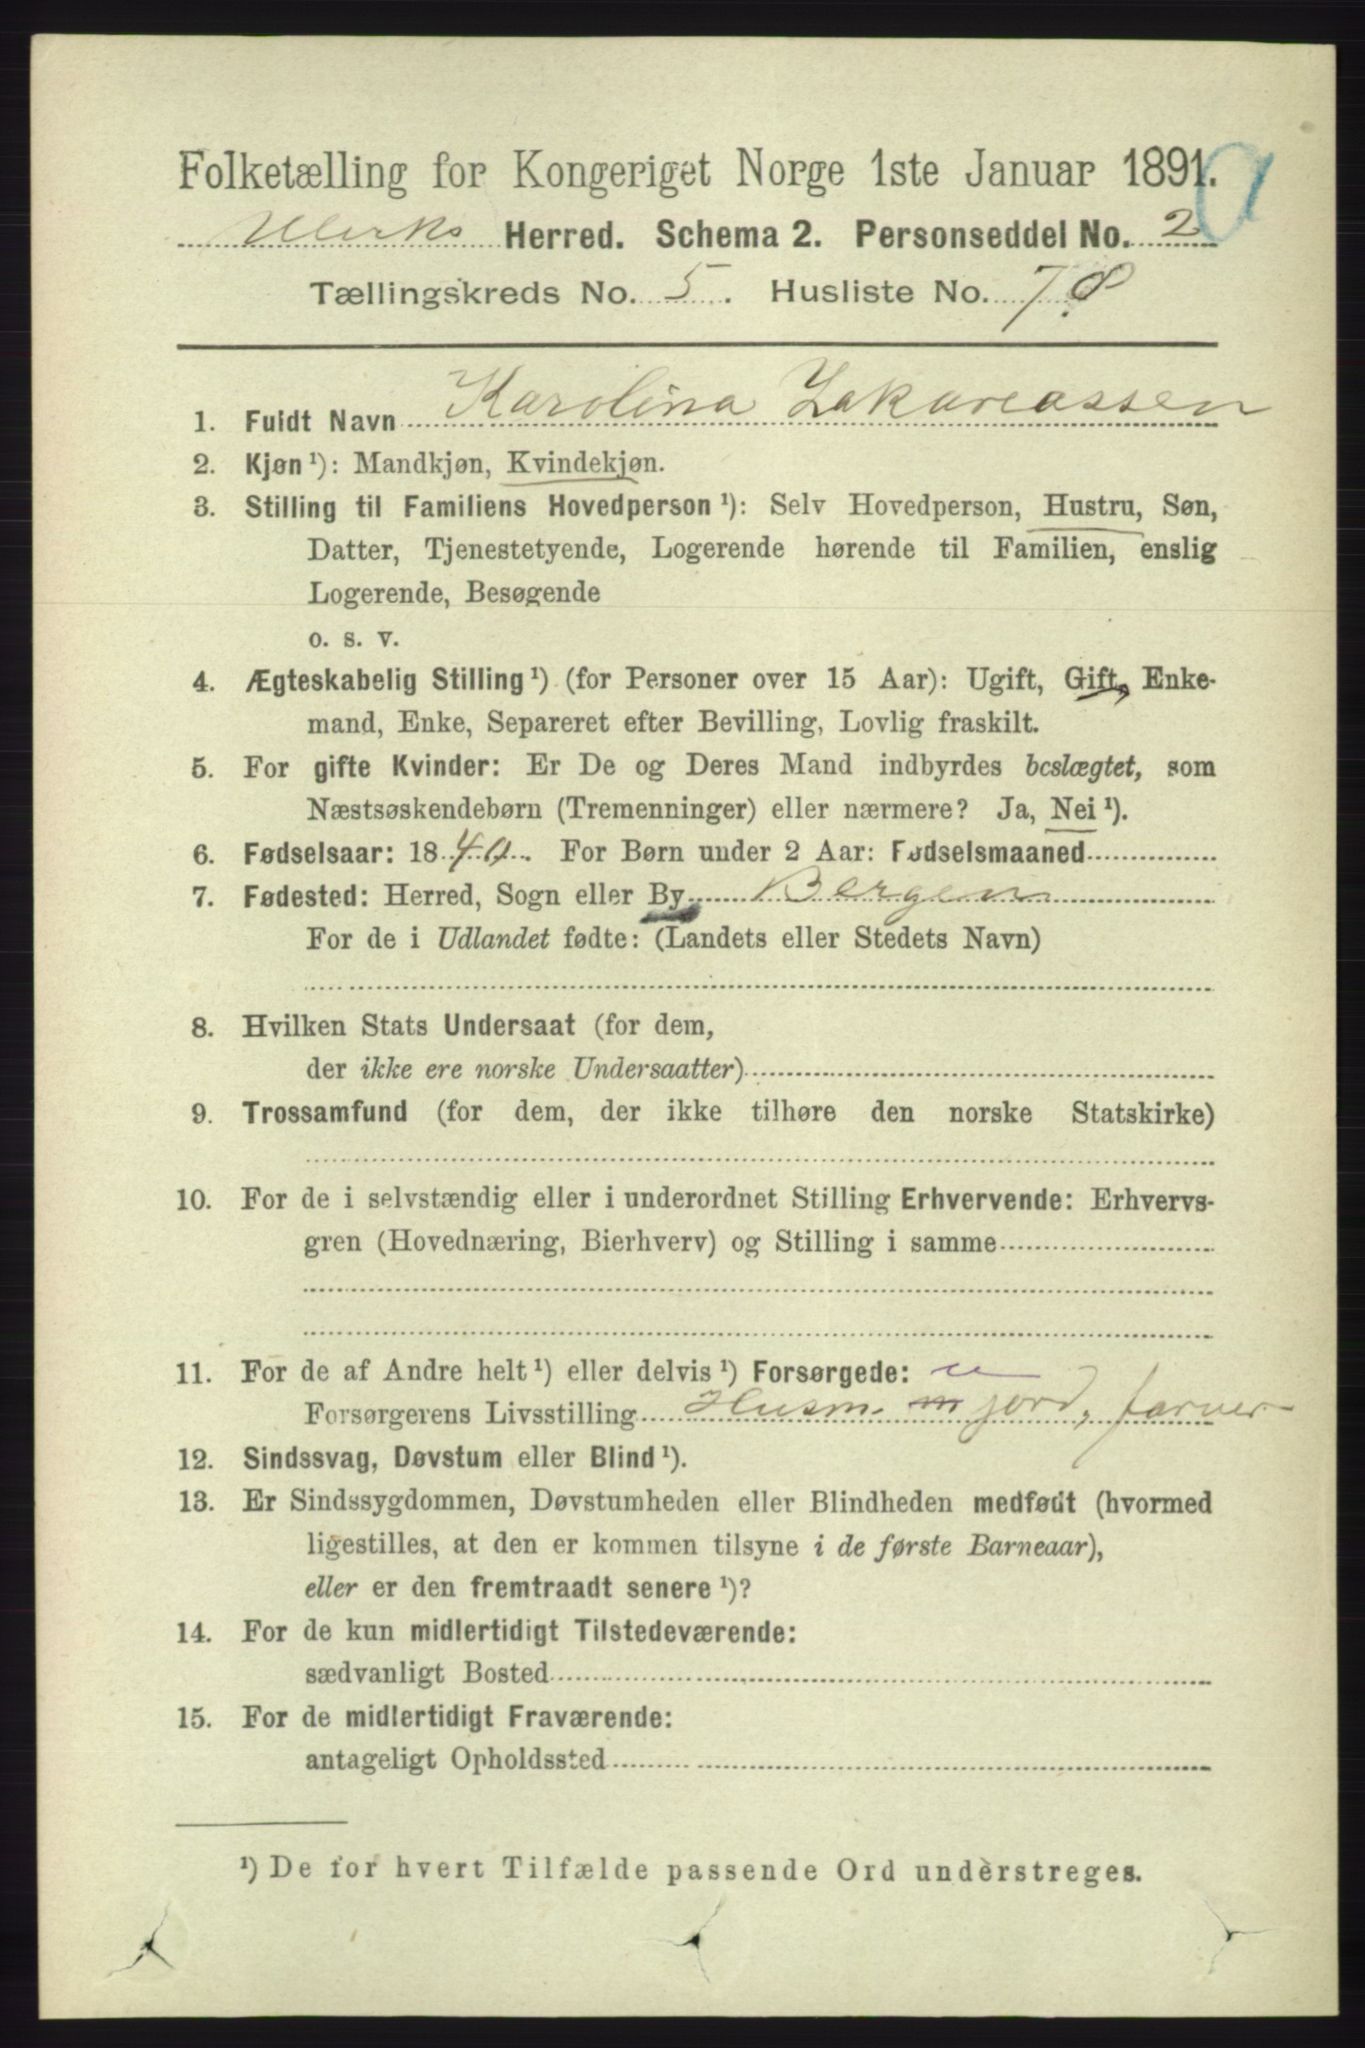 Folketælling for Kongeriget Norge 1ste Januar 1891.
Herred. Schema 2. Personseddel No. 2
Tællingskreds No. 5. Husliste No. 78
1. Fuldt Navn Karolina Zakareassen
2. Kjøn ¹): Mandkjøn, Kvindekjøn.
3. Stilling til Familiens Hovedperson ¹): Selv Hovedperson, Hustru, Søn,
Datter, Tjenestetyende, Logerende hørende til Familien, enslig
Logerende, Besøgende
o. s. v.
4. Ægteskabelig Stilling ¹) (for Personer over 15 Aar): Ugift, Gift, Enke-
mand, Enke, Separeret efter Bevilling, Lovlig fraskilt.
5. For gifte Kvinder: Er De og Deres Mand indbyrdes beslægtet, som
Næstsøskendebørn (Tremenninger) eller nærmere? Ja, Nei ¹).
6. Fødselsaar: 1840. For Børn under 2 Aar: Fødselsmaaned
7. Fødested: Herred, Sogn eller By Bergen
For de i Udlandet fødte: (Landets eller Stedets Navn)
8. Hvilken Stats Undersaat (for dem,
der ikke ere norske Undersaatter)
9. Trossamfund (for dem, der ikke tilhøre den norske Statskirke)
10. For de i selvstændig eller i underordnet Stilling Erhvervende: Erhvervs-
gren (Hovednæring, Bierhverv) og Stilling i samme
11. For de af Andre helt ¹) eller delvis ¹) Forsørgede:
Forsørgerens Livsstilling Husm. m jord, farver
12. Sindssvag, Døvstum eller Blind ¹).
13. Er Sindssygdommen, Døvstumheden eller Blindheden medfødt (hvormed
ligestilles, at den er kommen tilsyne i de første Barneaar),
eller er den fremtraadt senere ¹)?
14. For de kun midlertidigt Tilstedeværende:
sædvanligt Bosted
15. For de midlertidigt Fraværende:
antageligt Opholdssted
¹) De for hvert Tilfælde passende Ord understreges.